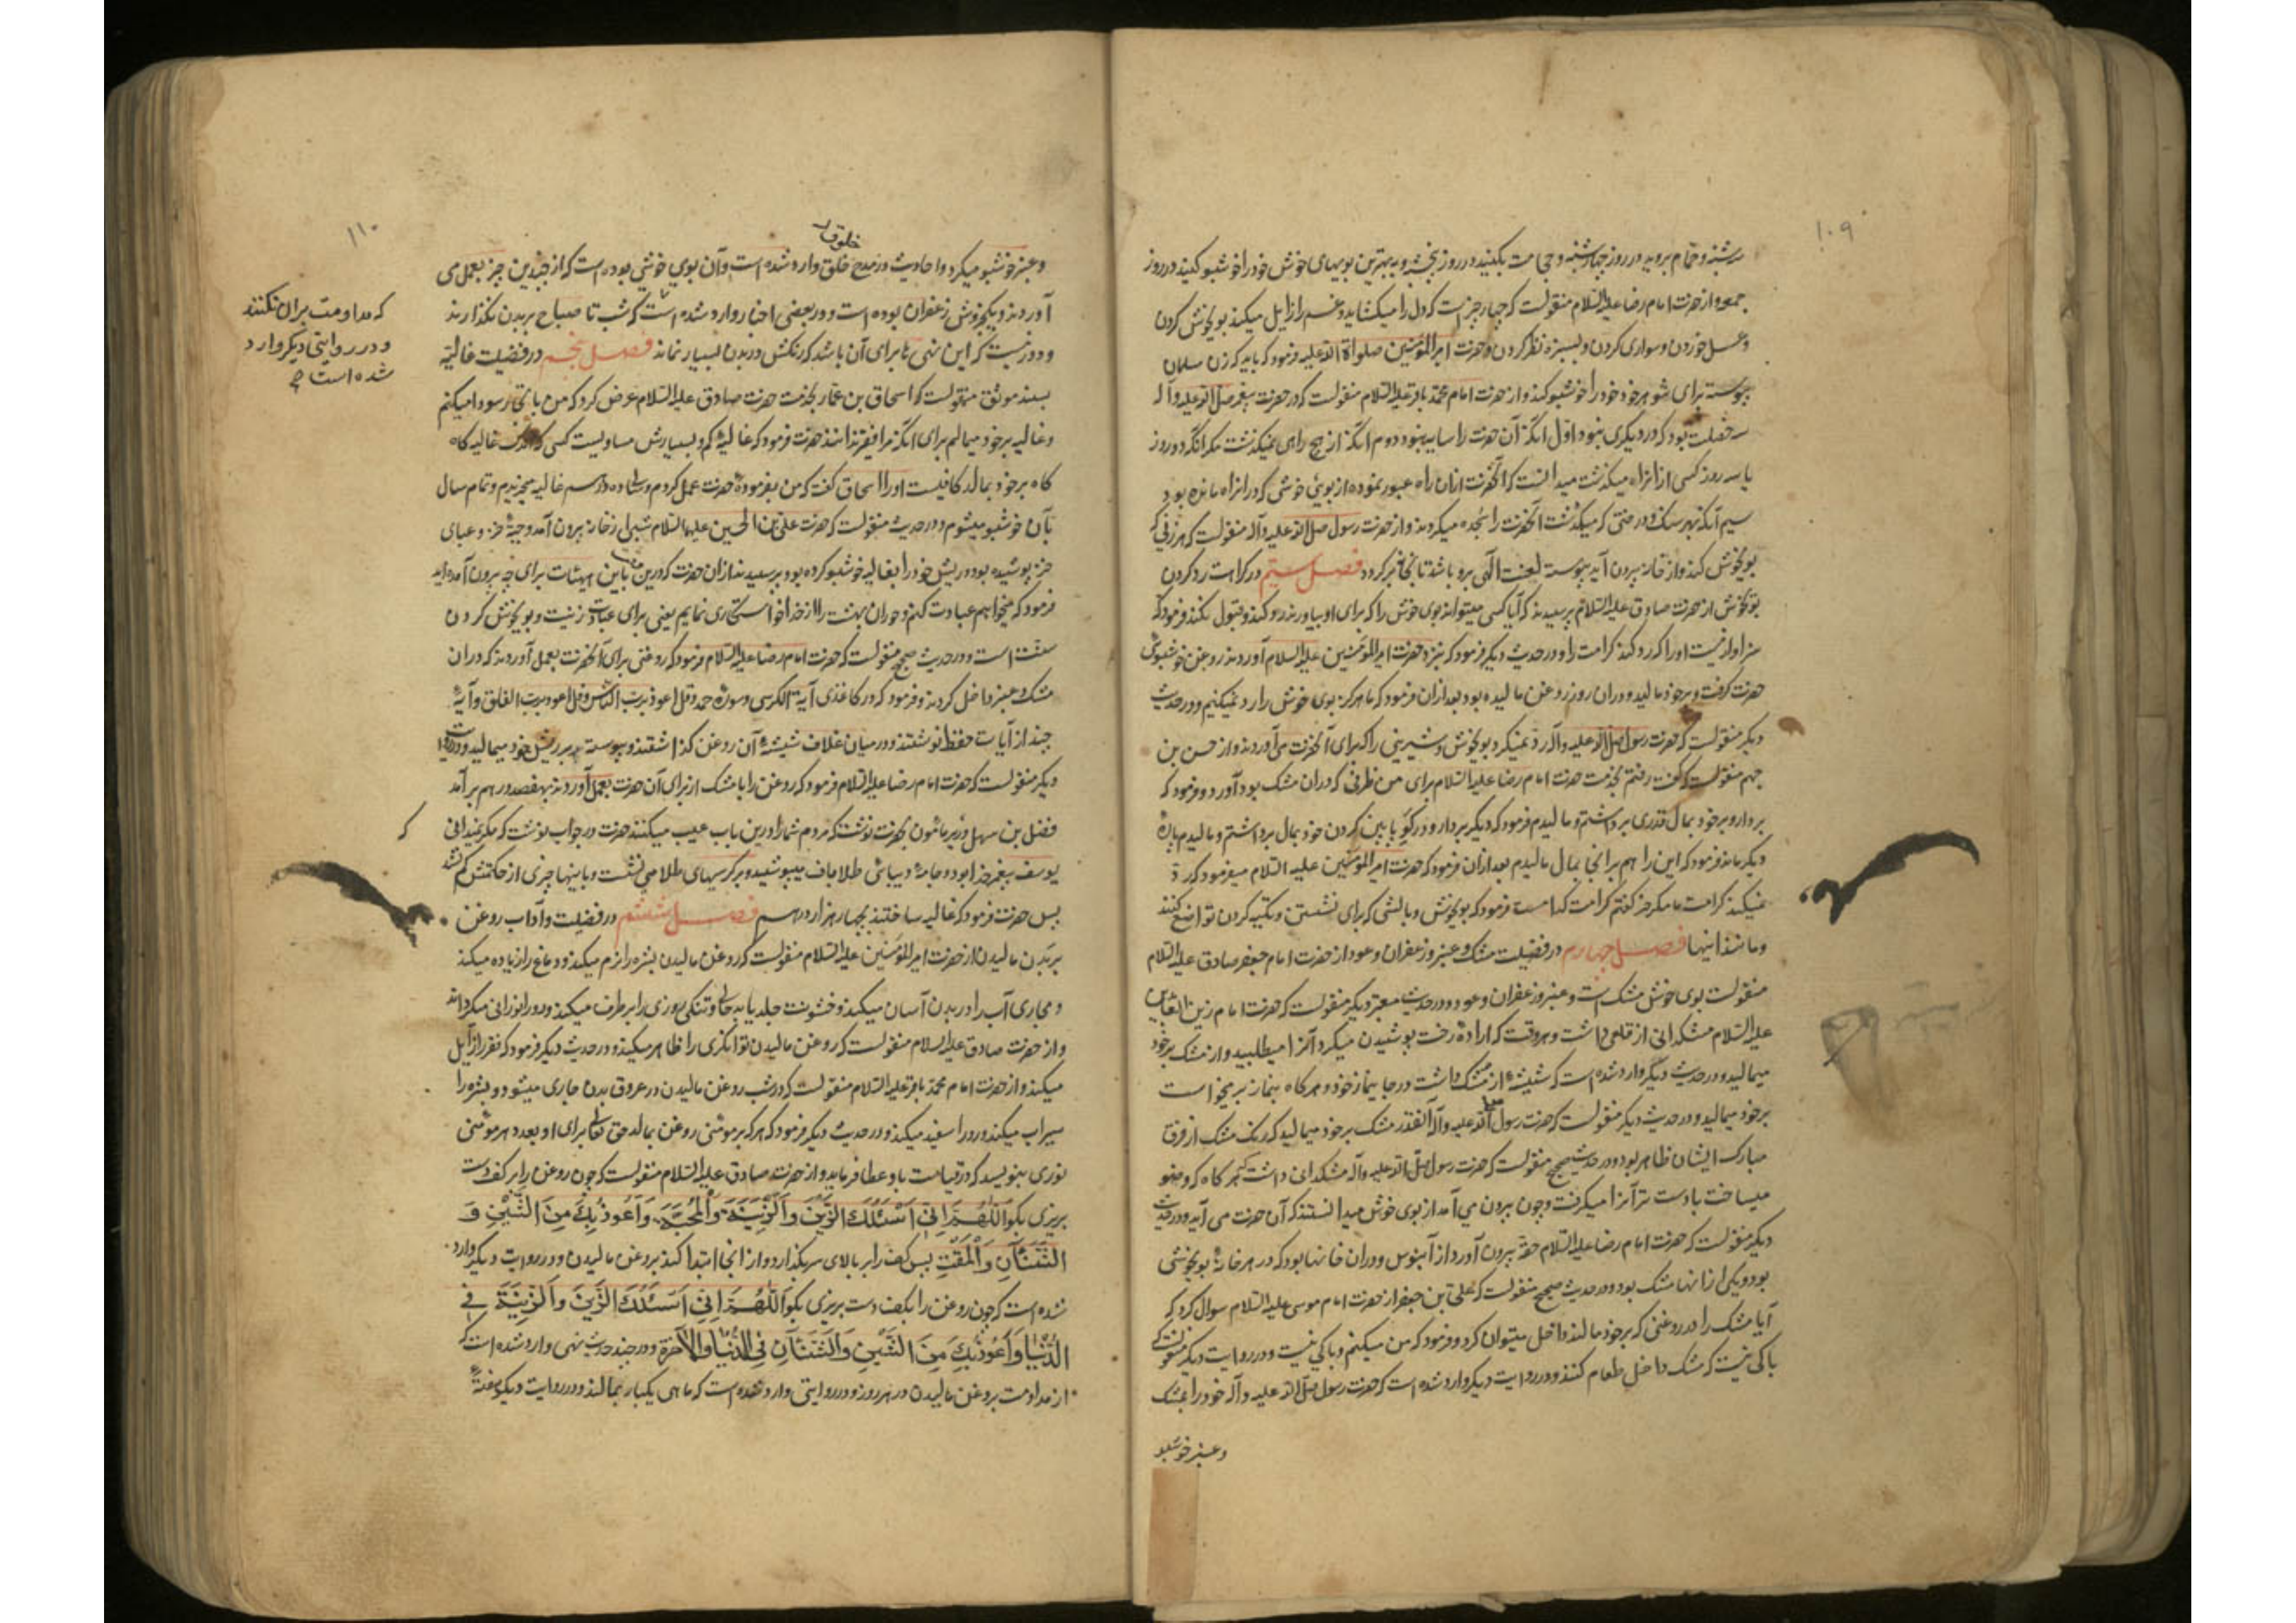 ۱۰۹
سه‌شنبه و حمام بروید در روز چهارشنبه و حجامت بکنید در روز پنجشنبه و به بهترین بویهای خوش خود را خوشبو کنید در روز
جمعه و از حضرت امام رضا علیه السلام منقولست که چهار چیز است که دل را میکشاید و غم را زایل میکند بوی خوش کردن
و عسل خوردن و سواری کردن و بسبزه نظر کردن و حضرت امیر المؤمنین صلواة الله علیه فرمود که باید که زن مسلمان
پیوسته برای شوهر خود خود را خوشبو کند و از حضرت امام محمد باقر علیه السلام منقولست که در حضرت پیغمبر صلی الله علیه وآله
سه خصلت بود که در دیگری نبود اول آنکه آن حضرت را سایه نبود دوم آنکه از هیچ راهی نمیگذشت مگر آنکه دو روز
یا سه روز کسی از انراه میگذشت میدانست که آنحضرت ازان راه عبور نموده از بوی خوشی که در انراه مانده بود
سیم آنکه بهر سنک و درختی که میگذشت آنحضرت را سجده میکردند و از حضرت رسول صلی الله علیه وآله منقولست که هر زنی که
بوی خوش کند و از خانه بیرون آید پیوسته لعنت الهی بر او باشد تا بخانه برگردد فصل سیم در کراهت رد کردن
بوی خوش از حضرت صادق علیه السلام پرسیدند که آیا کسی میتواند بوی خوش را که برای او بیاورند رد کند و قبول نکند فرمود که
سزاوار نیست او را که رد کند کرامت را و در حدیث دیگر فرمود که نزد حضرت امیر المؤمنین علیه السلام آوردند روغن خوشبوئی
حضرت گرفت و بر خود مالید و دران روز روغن مالیده بود بعد ازان فرمود که ما هرگز بوی خوش را رد نمیکنیم و در حدیث
دیگر منقولست که حضرت رسول صلی الله علیه وآله رد نمیکرد بوی خوش و شیرینی را که برای آنحضرت می‌آوردند و از حسن بن
جهم منقولست که گفت رفتم بخدمت حضرت امام رضا علیه السلام برای من ظرفی که دران مشک بود آورد و فرمود که
بردار و بر خود بمال قدری برداشتم و مالیدم فرمود که دیگر بردار و در گو پایین گردن خود بمال برداشتم و مالیدم پارهٔ
دیگر ماند فرمود که این را هم برانجا بمال مالیدم بعد ازان فرمود که حضرت امیر المؤمنین علیه السلام میفرمود که رد
نمیکند کرامت را مگر خر گفتم کرامت کدامست فرمود که بوی خوش و بالشی که برای نشستن و تکیه کردن تواضع کنند
و مانند اینها فصل چهارم در فضیلت مشک و عنبر و زعفران و عود از حضرت امام جعفر صادق علیه السلام
منقولست بوی خوش مشک است و عنبر و زعفران و عود و در حدیث معتبر دیگر منقولست که حضرت امام زین العابدین
علیه السلام مشکدانی از قلعی داشت و هر وقت که ارادهٔ رخت پوشیدن میکرد آنرا میطلبید و از مشک بر خود
میمالید و در حدیث دیگر وارد شده است که شیشهٔ از مشک داشت در جا نماز خود و هرگاه بنماز برمیخواست
بر خود میمالید و در حدیث دیگر منقولست که حضرت رسول صلی الله علیه وآله آنقدر مشک بر خود میمالید که رنک مشک از فرق
مبارک ایشان ظاهر بود و در حدیث صحیح منقولست که حضرت رسول صلی الله علیه وآله مشکدانی داشت که هرگاه که وضو
میساخت با دست تر آنرا میگرفت و چون بیرون می آمد از بوی خوش میدانستند که آن حضرت می آید و در حدیث
دیگر منقولست که حضرت امام رضا علیه السلام حقه بیرون آورد از آبنوس و دران خانها بود که در هر خانهٔ بوی خوشی
بود و یکی از انها مشک بود و در حدیث صحیح منقولست که علی بن جعفر از حضرت امام موسی علیه السلام سوال کرد که
آیا مشک را در روغنی که بر خود مالند داخل میتوان کرد و فرمود که من میکنم و باکی نیست و در روایت دیگر منقولست که
باکی نیست که مشک داخل طعام کنند و در روایت دیگر وارد شده است که حضرت رسول صلی الله علیه وآله خود را بمشک
و عنبر خوشبو
۱۱۰
خلوق
و عنبر خوشبو میکرد و احادیث در مدح خلق وارد شده است و آن بوی خوشی بوده است که از چندین چیز بعمل می
آوردند و یکجزوش زعفران بوده است و در بعضی اخبار وارد شده است که شب تا صباح بر بدن نگذارند
و دور نیست که این نهی ها برای آن باشد که رنگش در بدن بسیار نماند فصل پنجم در فضیلت غالیه
بسند موثق منقولست که اسحاق بن عمار بخدمت حضرت صادق علیه السلام عرض کرد که من با تجار سودا میکنم
و غالیه بر خود میمالم برای آنکه مرا فقیر ندانند حضرت فرمود که غالیه کم و بسیارش مساویست کسی که اندک غالیه گاه
گاه بر خود بمالد کافیست او را اسحاق گفت که من بفرمودهٔ حضرت عمل کردم و سالی ده درهم غالیه میخریدم و تمام سال
بآن خوشبو میشوم و در حدیث منقولست که حضرت علی بن الحسین علیهما السلام شبی از خانه بیرون آمد و جبهٔ خز و عبای
خز پوشیده بود و ریش خود را بغالیه خوشبو کرده بود پرسیدند ازان حضرت که درین ساعت باین هیئات برای چه بیرون آمده اید
فرمود که میخواهم عبادت کنم و حوران بهشت را از خدا خواستگاری نمایم یعنی برای عبادت زینت و بوی خوش کردن
سنت است و در حدیث صحیح منقولست که حضرت امام رضا علیه السلام فرمود که روغنی برای آنحضرت بعمل آوردند که دران
مشک و عنبر داخل کردند و فرمود که در کاغذی آیة الکرسی و سورهٔ حمد و قل اعوذ برب الناس و قل اعوذ برب الفلق و آیهٔ
چند از آیات حفظ نوشتند و در میان غلاف شیشهٔ آن روغن گذاشتند و پیوسته بر ریش خود میمالید و در روایت
دیگر منقولست که حضرت امام رضا علیه السلام فرمود که روغن را با مشک از برای آن حضرت بعمل آوردند بهفصد درهم برآمد
فضل بن سهل وزیر مامون بحضرت نوشت که مردم شما را درین باب عیب میکنند حضرت در جواب نوشت که مگر نمیدانی که
یوسف پیغمبر خدا بود و جامهٔ دیبای طلاباف میپوشید و بر کرسیهای طلا می نشست و باینها چیزی از حکمتش کم نشد
پس حضرت فرمود که غالیه ساختند بچهار هزار درهم فصل ششم در فضیلت و آداب روغن
بر بدن مالیدن از حضرت امیر المؤمنین علیه السلام منقولست که روغن مالیدن بشره را نرم میکند و دماغ را زیاده میکند
و مجاری آب را در بدن آسان میکند و خشونت جلد یا بد حالی و تنگی روزی را برطرف میکند و رو را نورانی میگرداند
و از حضرت صادق علیه السلام منقولست که روغن مالیدن توانگری را ظاهر میکند و در حدیث دیگر فرمود که فقر را زایل
میکند و از حضرت امام محمد باقر علیه السلام منقولست که در شب روغن مالیدن در عروق بدن جاری میشود و بشره را
سیراب میکند و رو را سفید میکند و در حدیث دیگر فرمود که هر که بر مومنی روغن بمالد حق تعالی برای او بعدد هر موئی
نوری بنویسد که در قیامت باو عطا فرماید و از حضرت صادق علیه السلام منقولست که چون روغن را بر کف دست
بریزی بگو اَللّهُمَّ اِنّی اَسْئَلُكَ الزَّیْنَ وَالزّینَةَ وَالْمَحَبَّةَ وَاَعُوذُ بِكَ مِنَ الشَّیْنِ وَ
الشَّنَئآنِ وَالْمَقْتِ پس کف را بر بالای سر بگذارد و از انجا ابتدا کند بروغن مالیدن و در روایت دیگر وارد
شده است که چون روغن را بکف دست بریزی بگو اَللّهُمَّ اِنّی اَسْئَلُكَ الزَّیْنَ وَالزّینَةَ فی
الدُّنْیا وَاَعُوذُ بِكَ مِنَ الشَّیْنِ وَالشَّنَئآنِ فِی الدُّنْیا وَالآخرة و در چند حدیث نهی وارد شده است که
از مداومت بروغن مالیدن در هر روز و در روایتی وارد شده است که ماهی یکبار بمالند و در روایت دیگر هفتهٔ
که مداومت بران نکنند
و در روایتی دیگر وارد
شده است